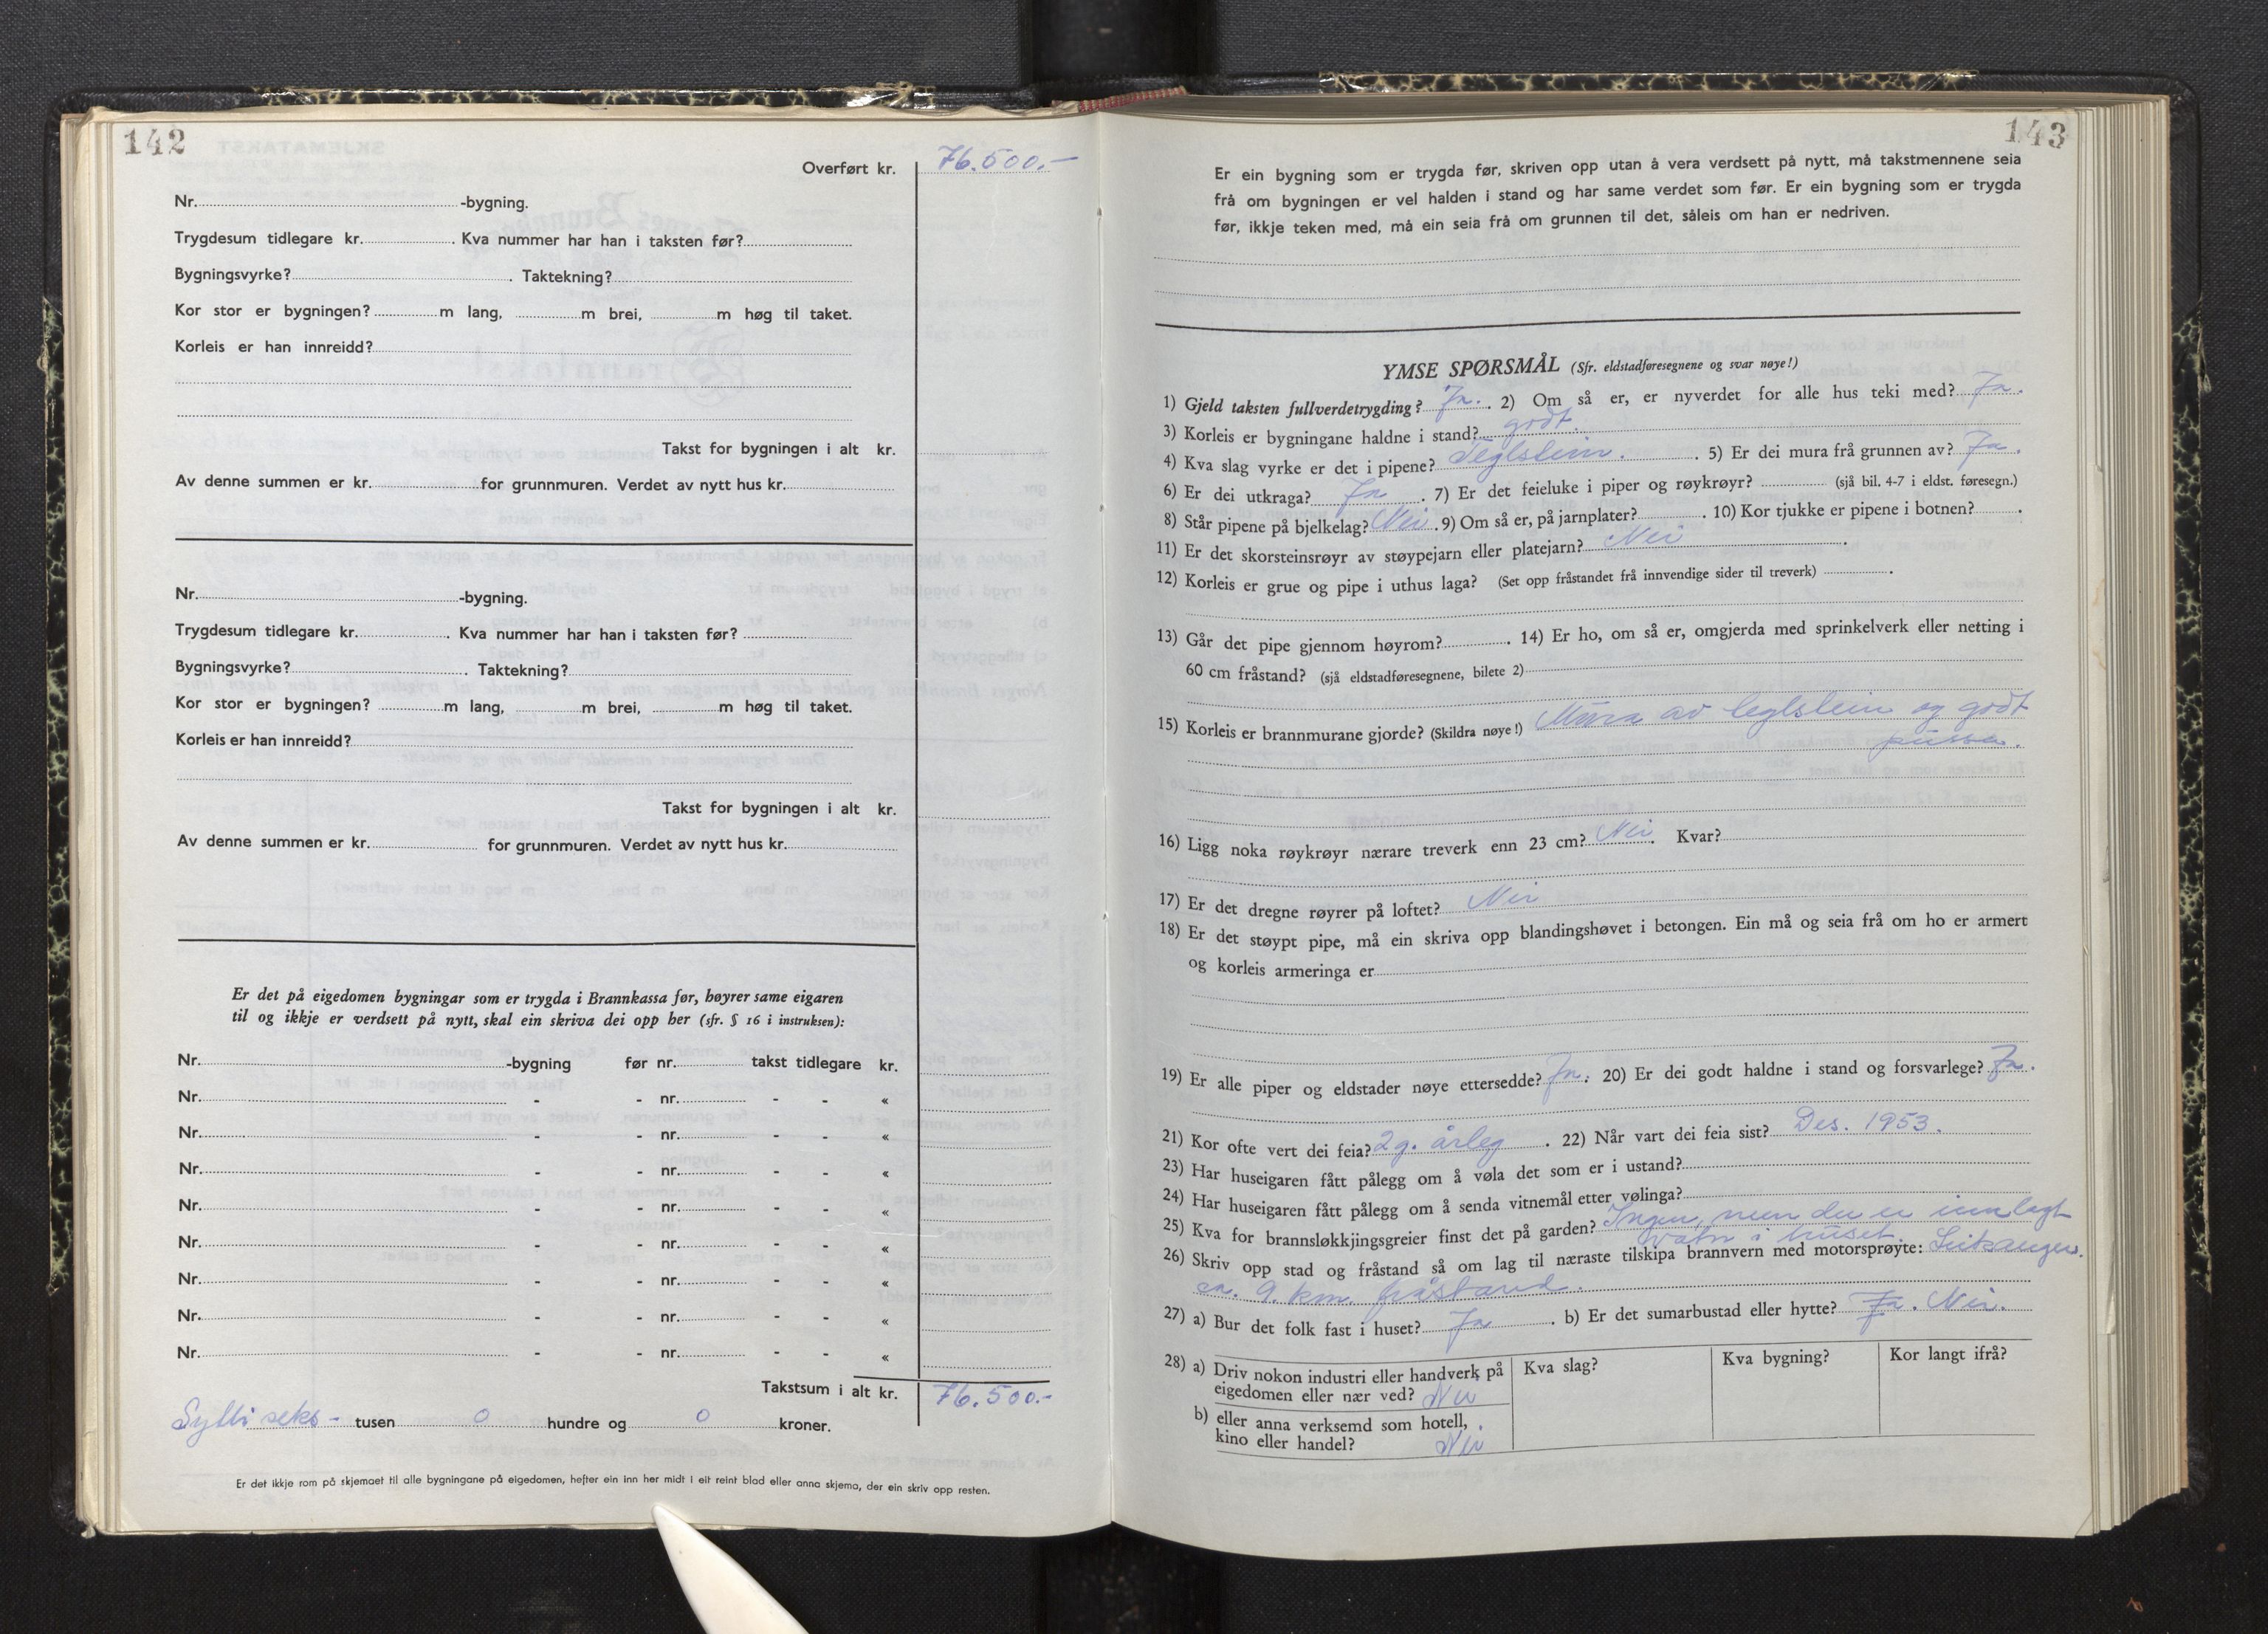 142
Overført kr. 76.500.-
Nr. -bygning.
Trygdesum tidlegare kr. . Kva nummer har han i taksten før?
Bygningsvyrke? . Taktekning?
Kor stor er bygningen? m lang, m brei, m høg til taket.
Korleis er han innreidd?
Takst for bygningen i alt kr.
Av denne summen er kr. for grunnmuren. Verdet av nytt hus kr.
Nr. -bygning.
Trygdesum tidlegare kr. . Kva nummer har han i taksten før?
Bygningsvyrke? . Taktekning?
Kor stor er bygningen? m lang, m brei, m høg til taket.
Korleis er han innreidd?
Takst for bygningen i alt kr.
Av denne summen er kr. for grunnmuren. Verdet av nytt hus kr.
Er det på eigedomen bygningar som er trygda i Brannkassa før, høyrer same eigaren
til og ikkje er verdsett på nytt, skal ein skriva dei opp her (sfr. § 16 i instruksen):
Nr. -bygning før nr. takst tidlegare kr.
Nr. - - nr. - - «
Nr. - - nr. - - «
Nr. - - nr. - - «
Nr. - - nr. - - «
Nr. - - nr. - - «
Nr. - - nr. - - «
Nr. - - nr. - - «
Nr. - - nr. - - «
Takstsum i alt kr. 76.500.-
Sytti seks - tusen 0 hundre og 0 kroner.
Er det ikkje rom på skjemaet til alle bygningane på eigedomen, hefter ein inn her midt i eit reint blad eller anna skjema, der ein skriv opp resten.
143
Er ein bygning som er trygda før, skriven opp utan å vera verdsett på nytt, må takstmennene seia
frå om bygningen er vel halden i stand og har same verdet som før. Er ein bygning som er trygda
før, ikkje teken med, må ein seia frå om grunnen til det, såleis om han er nedriven.
YMSE SPØRSMÅL (Sfr. eldstadføresegnene og svar nøye!)
1) Gjeld taksten fullverdetrygding? Ja. . 2) Om så er, er nyverdet for alle hus teki med? Ja.
3) Korleis er bygningane haldne i stand? godt.
4) Kva slag vyrke er det i pipene? Teglstein. . 5) Er dei mura frå grunnen av? Ja.
6) Er dei utkraga? Ja . 7) Er det feieluke i piper og røykrøyr? (sjå bil. 4-7 i eldst. føresegn.)
8) Står pipene på bjelkelag? Nei . 9) Om så er, på jarnplater? . 10) Kor tjukke er pipene i botnen? .
11) Er det skorsteinsrøyr av støypejarn eller platejarn? Nei .
12) Korleis er grue og pipe i uthus laga? (Set opp fråstandet frå innvendige sider til treverk) .
13) Går det pipe gjennom høyrom? . 14) Er ho, om så er, omgjerda med sprinkelverk eller netting i
60 cm fråstand? (sjå eldstadføresegnene, bilete 2)
15) Korleis er brannmurane gjorde? (Skildra nøye!) Mura av teglstein og godt
pussa.
16) Ligg noka røykrøyr nærare treverk enn 23 cm? Nei . Kvar?
17) Er det dregne røyrer på loftet? Nei
18) Er det støypt pipe, må ein skriva opp blandingshøvet i betongen. Ein må og seia frå om ho er armert
og korleis armeringa er
19) Er alle piper og eldstader nøye ettersedde? Ja. . 20) Er dei godt haldne i stand og forsvarlege? Ja.
21) Kor ofte vert dei feia? 2 g. årleg . 22) Når vart dei feia sist? Des. 1953.
23) Har huseigaren fått pålegg om å vøla det som er i ustand?
24) Har huseigaren fått pålegg om å senda vitnemål etter vølinga?
25) Kva for brannsløkkjingsgreier finst det på garden? Ingen, men der er innlagt
vatn i huset.
26) Skriv opp stad og fråstand så om lag til næraste tilskipa brannvern med motorsprøyte: Leikanger.
ca. 9. km. fråstand.
27) a) Bur det folk fast i huset? Ja . b) Er det sumarbustad eller hytte? Ja. Nei.
28) a) Driv nokon industri eller handverk på
eigedomen eller nær ved? Nei
Kva slag? Kva bygning? Kor langt ifrå?
b) eller anna verksemd som hotell,
kino eller handel? Nei